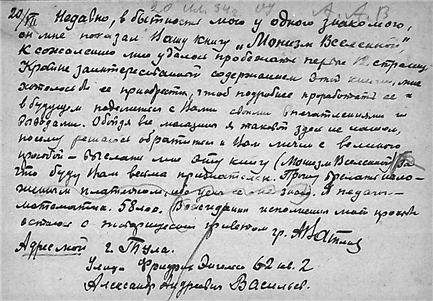 20/XII Недавно, в бытность мою у одного знакомого,
он мне показал Вашу книгу „Монизм Вселенной",
К сожалению мне удалось пробежать первые 12 страниц.
Крайне заинтересованный содержанием этой книги, мне
хотелось бы ее приобрести, чтоб подробнее проработать ее и
в будущем поделиться с Вами своими впечатлениями и
выводами. Обойдя все магазины я таковой здесь не нашел,
почему решаюсь обратиться к Вам лично с великой
просьбой – выслать мне эту книгу (Монизм Вселенной)
что буду Вам весьма признателен. Прошу выслать нало-
женным платежом, ибо цены я не знаю. Я педагог-
математик. 58 лет. В ожидании исполнения моей просьбы
остаюсь с товарищеским приветом гр.
Адрес мой г. Тула.
Улица Фридриха Энгельса 62 кв. 2
Александр Андреевич Васильев.